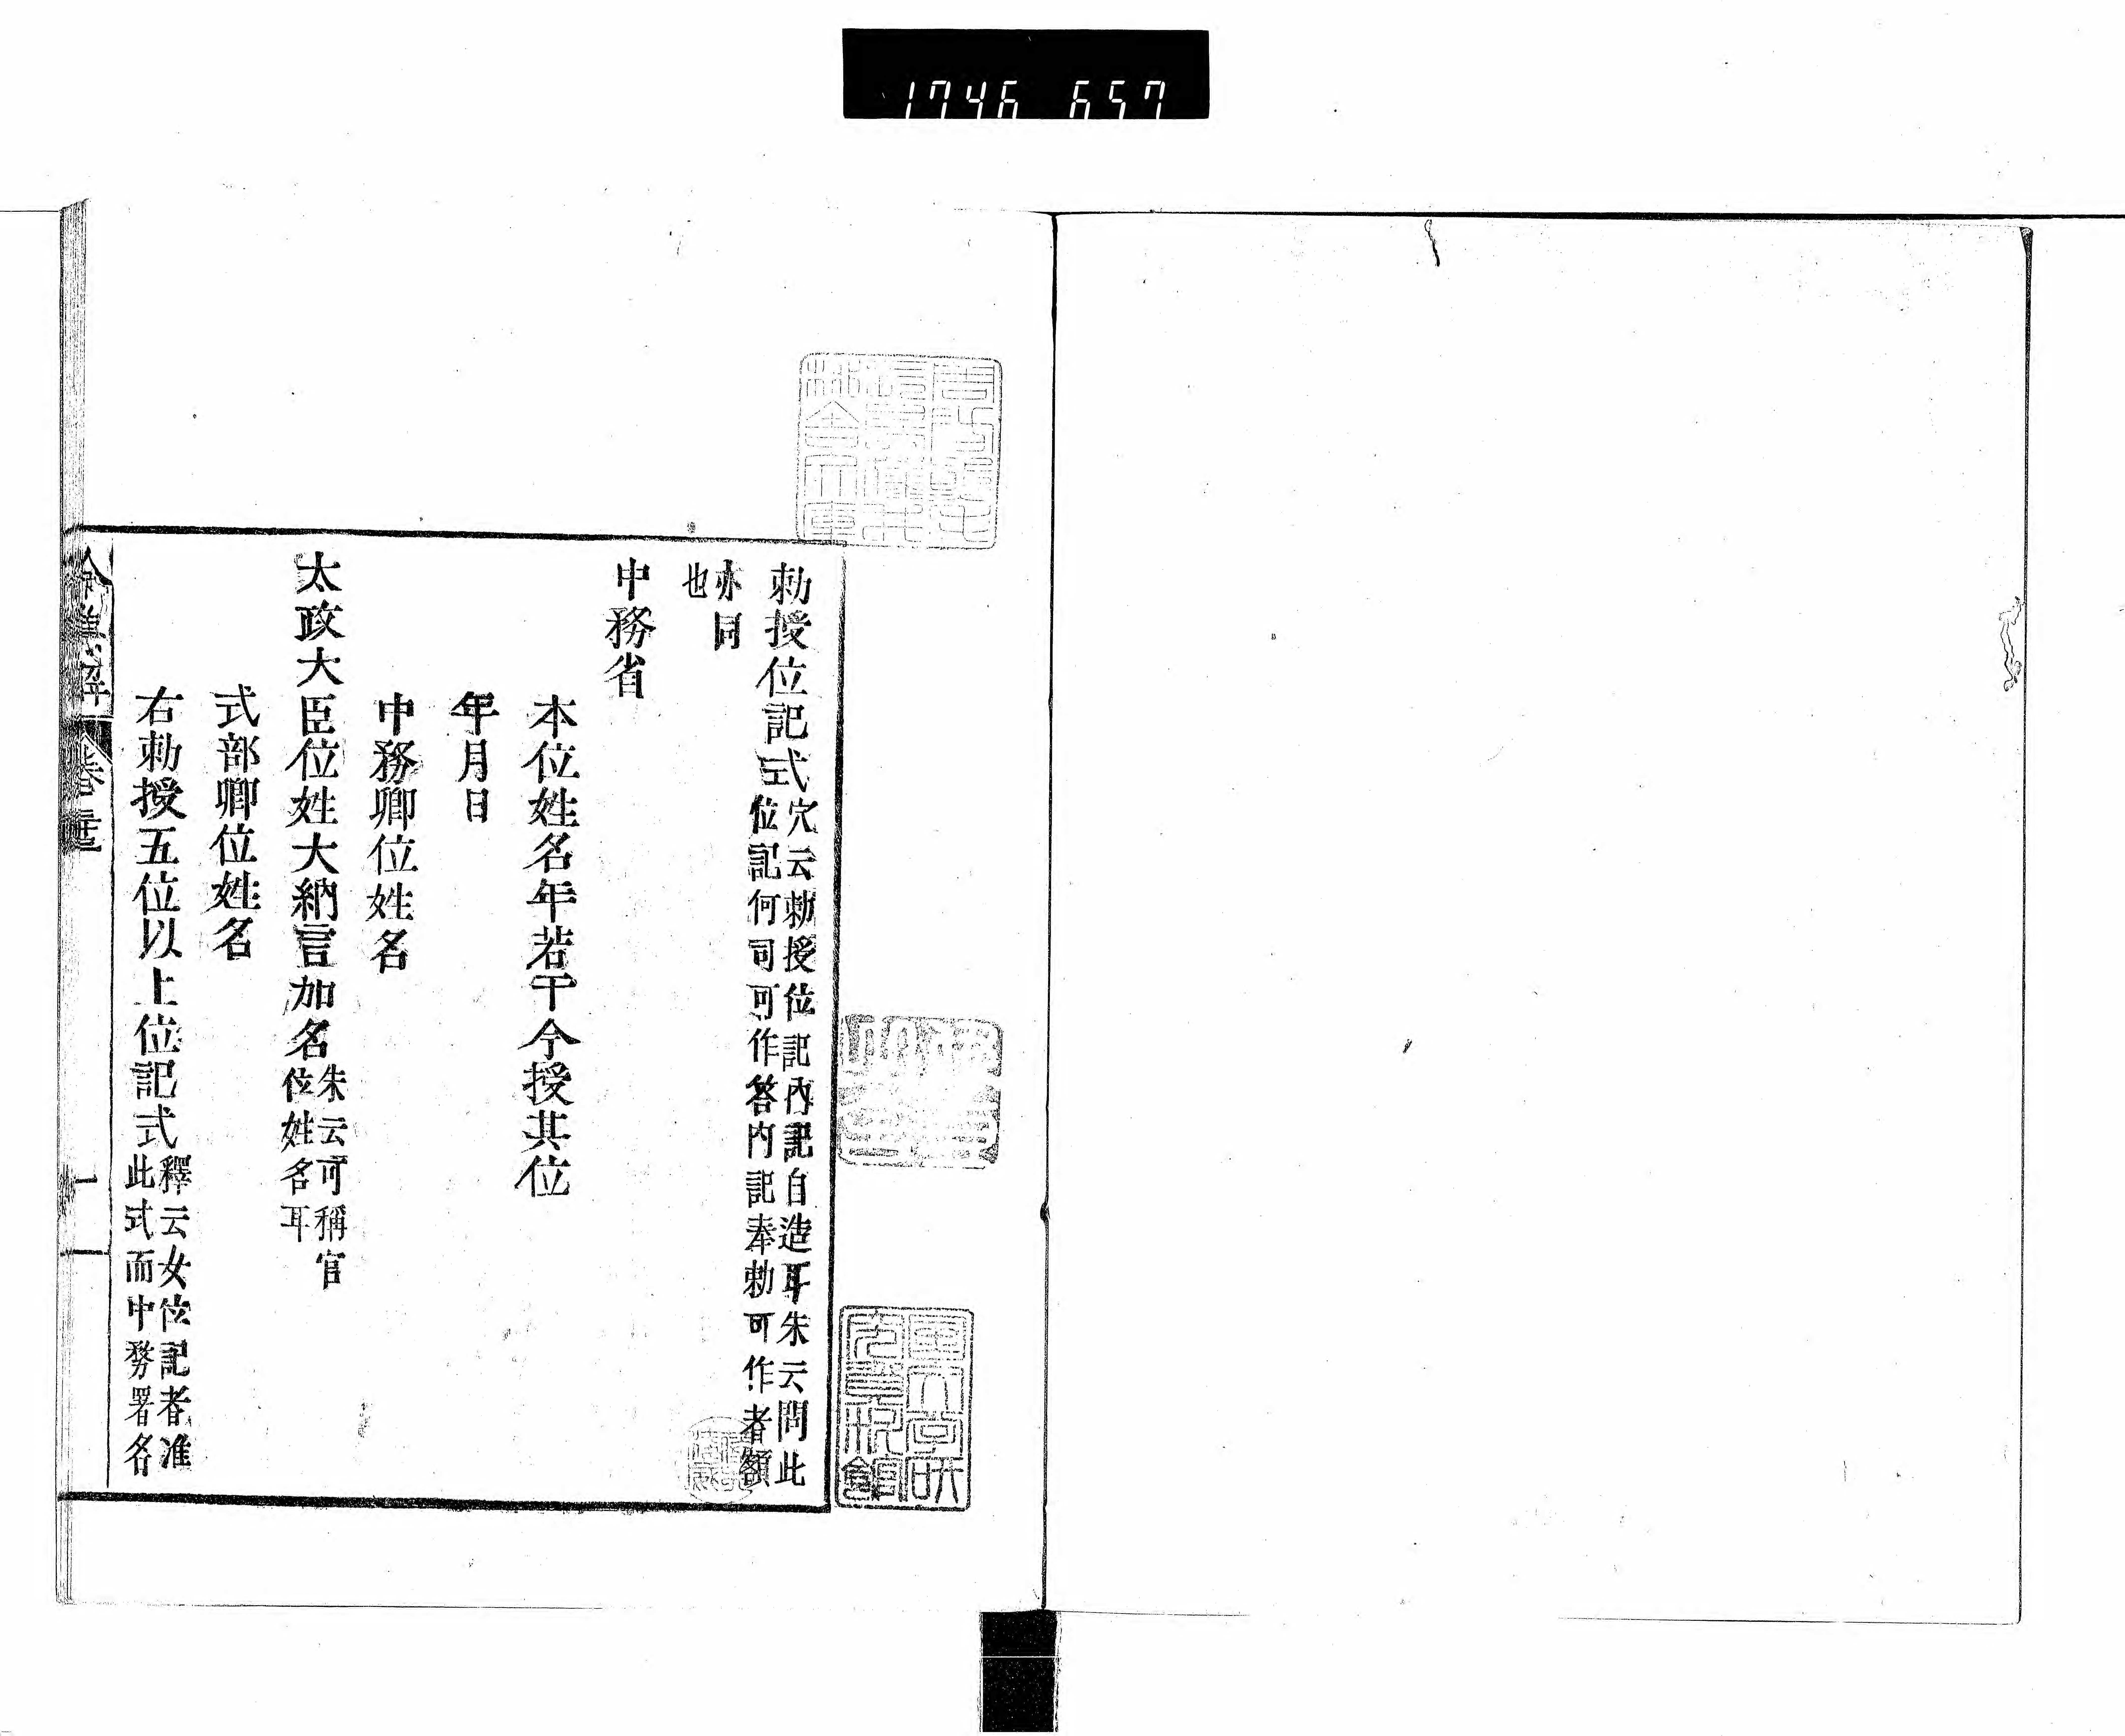 1746 657
勅授位記式穴云勅授位記內記自造耳朱云問此
位記何司可作答内記奉勅可作者額
亦同
也
中務省
本位姓名年若干今授其位
年月日
中務卿位姓名
太政大臣位姓大納言加名朱云可稱官
位姓名耳
式部卿位姓名
右勅授五位以上位記式釋云女位記者准
此式而中務署名
一